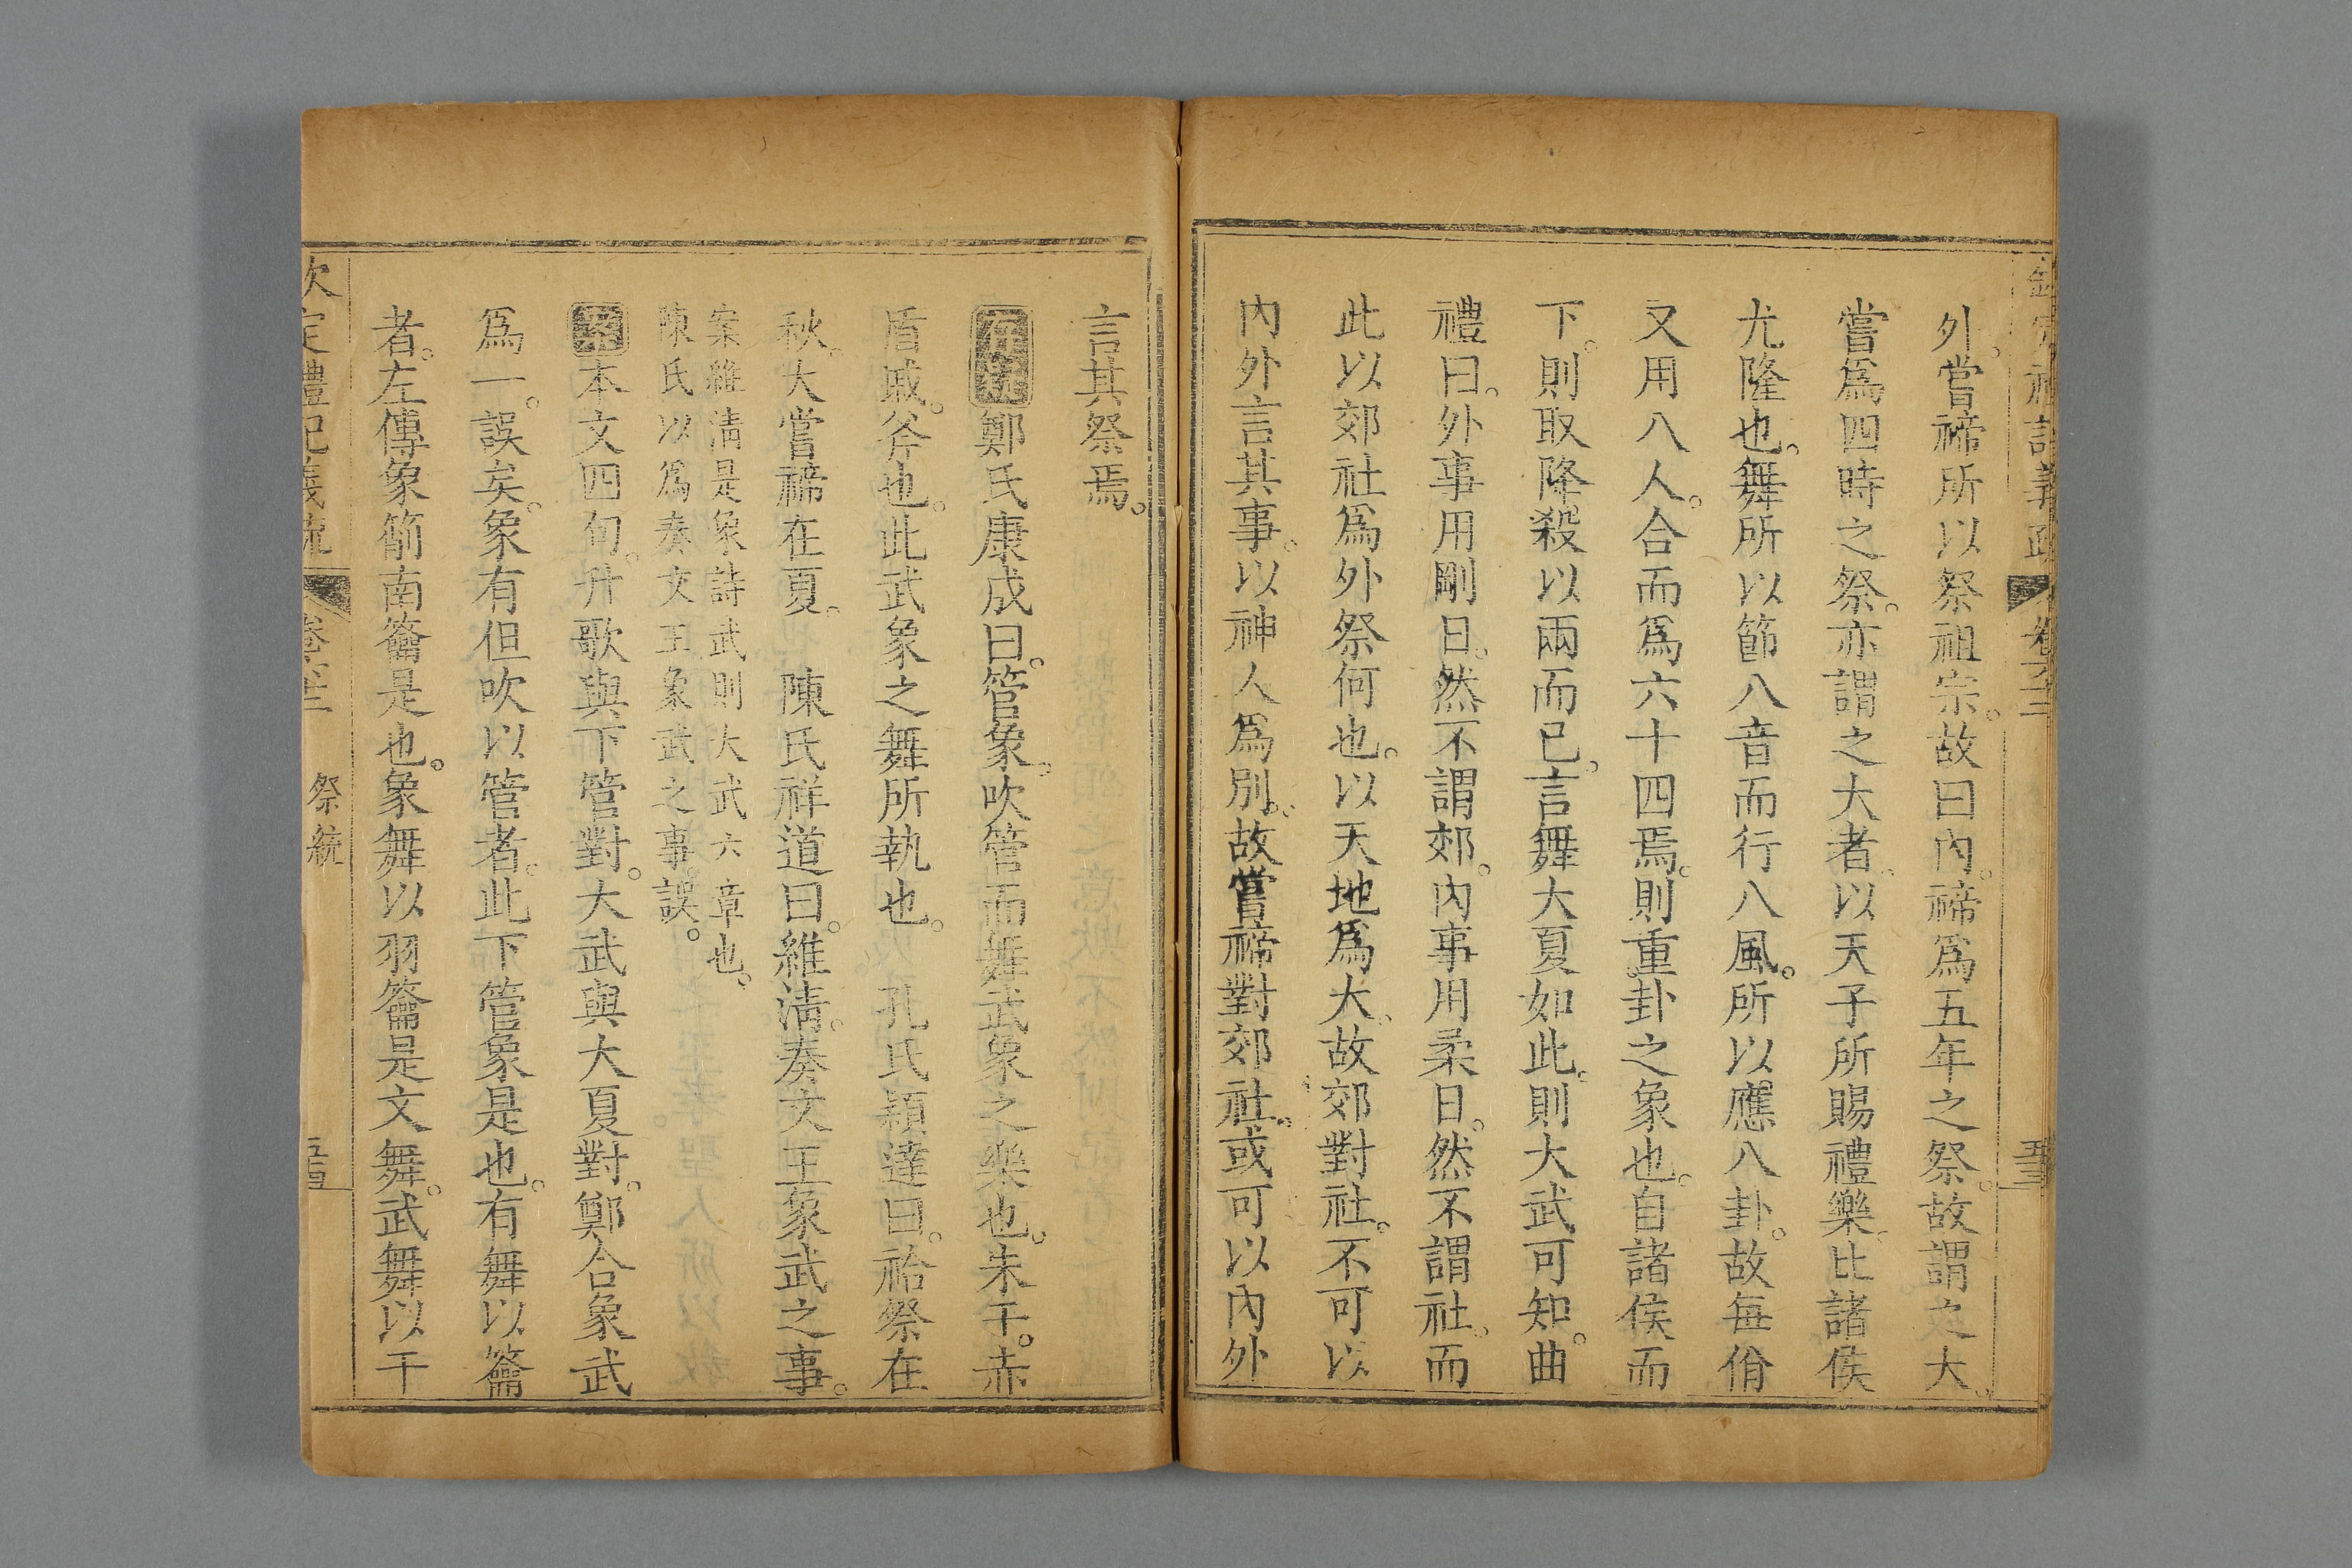 外。嘗禘所以祭祖宗。故曰内。禘爲五年之祭。故謂之大。
嘗爲四時之祭。亦謂之大者。以天子所賜禮樂。比諸侯
尤隆也。舞所以節八音而行八風。所以應八卦。故每佾
又用八人。合而爲六十四焉。則重卦之象也。自諸侯而
下。則取降殺以兩而已。言舞大夏如此。則大武可知。曲
禮曰。外事用剛日。然不謂郊。内事用柔日。然不謂社。而
此以郊社爲外祭何也。以天地爲大。故郊對社。不可以
内外言其事。以神人爲別。故嘗禘對郊社。或可以内外
言其祭焉。
鄭氏康成曰。管象。吹管而舞武象之樂也。朱干。赤
盾戚。斧也。此武象之舞所執也。 孔氏穎達曰。祫祭在
秋。大嘗禘在夏。 陳氏祥道曰。維清。奏文王象武之事。
案維清是象詩武則大武六章也。
陳氏以爲奏文王象武之事誤。
本文四句。升歌與下管對。大武與大夏對。鄭合象武
爲一。誤矣。象有但吹以管者。此下管象是也。有舞以籥
者。左傳象箾南籥是也。象舞以羽籥是文舞。武舞以干
欽定禮記義疏 卷六十二 祭統 五四